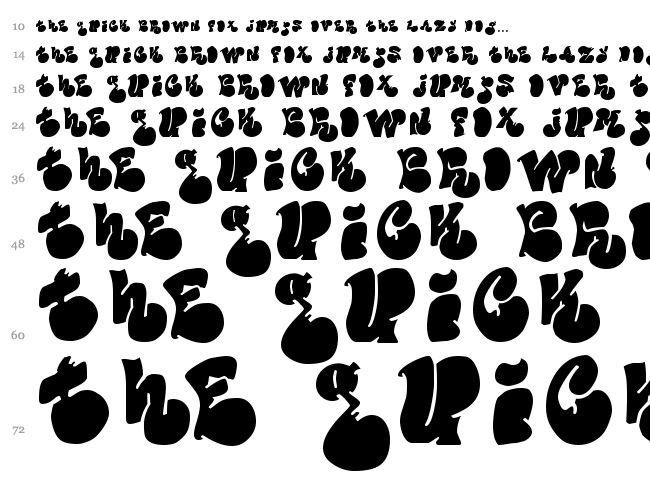 10 the quick brown fox jumps over the lazy dog...
14 the quick brown fox jumps over the lazy do
18 the quick brown fox jumps over t
24 the quick brown fox jump
36 the quick brown
48 the quick bro
60 the quick
72 the quic